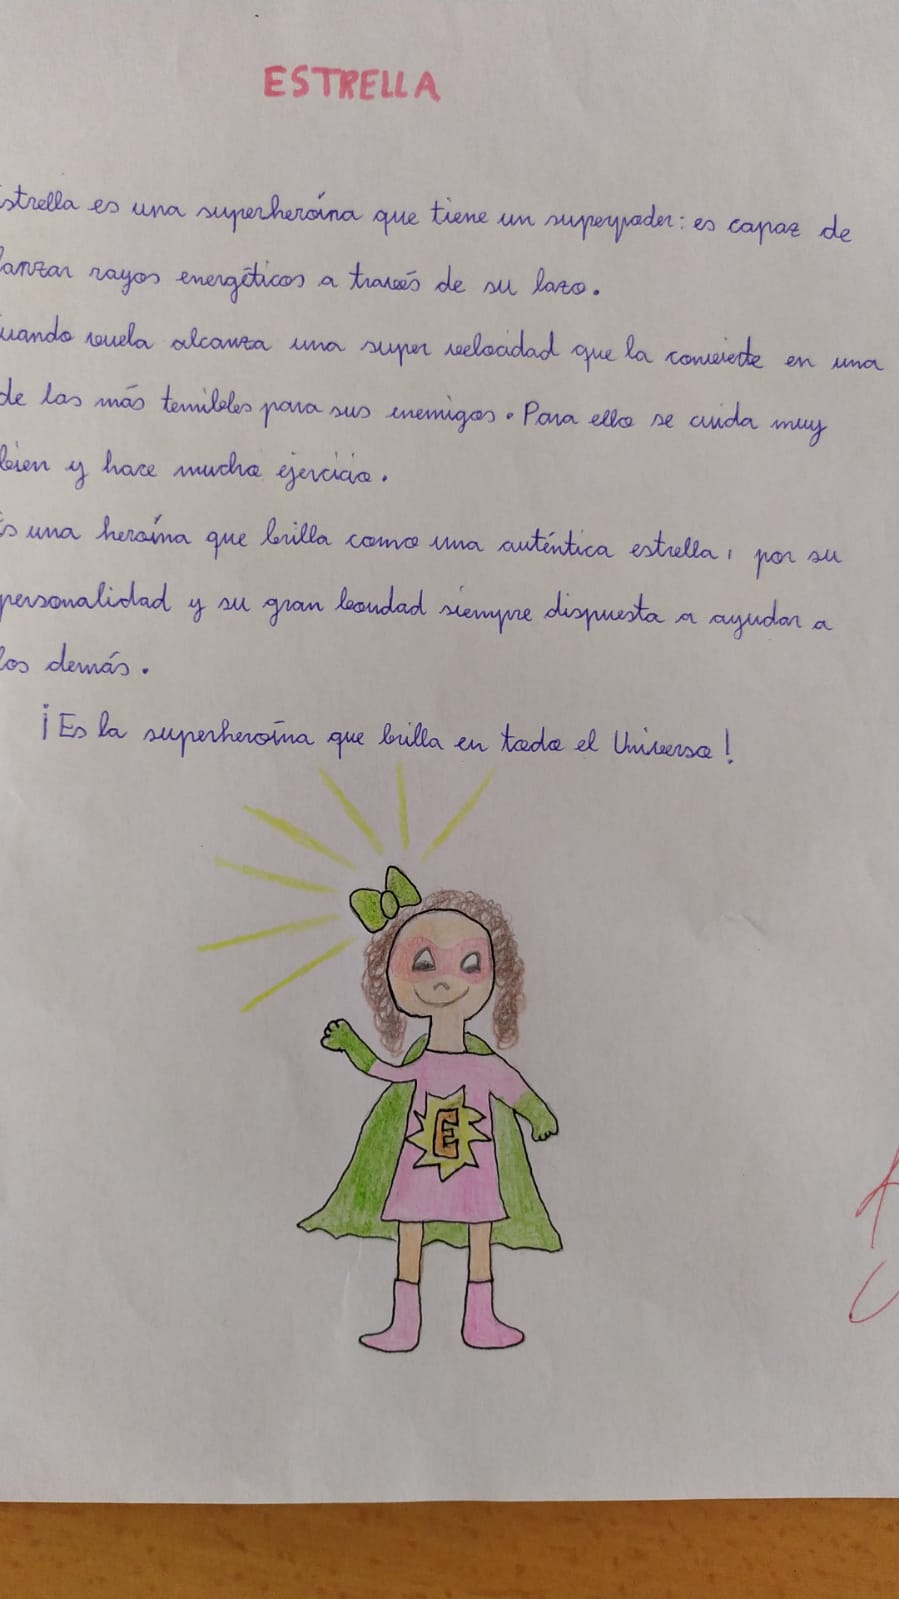 ESTRELLA
Estrella es una superheroína que tiene un superpoder: es capaz de
lanzar rayos energéticos a través de su lazo.
Cuando vuela alcanza una super velocidad que la convierte en una
de las más temibles para sus enemigos. Para ello se cuida muy
bien y hace mucho ejercicio.
Es una heroína que brilla como una auténtica estrella, por su
personalidad y su gran boudad siempre dispuesta a ayudar a
los demás.
¡Es la superheroína que brilla en todo el Universo!
E